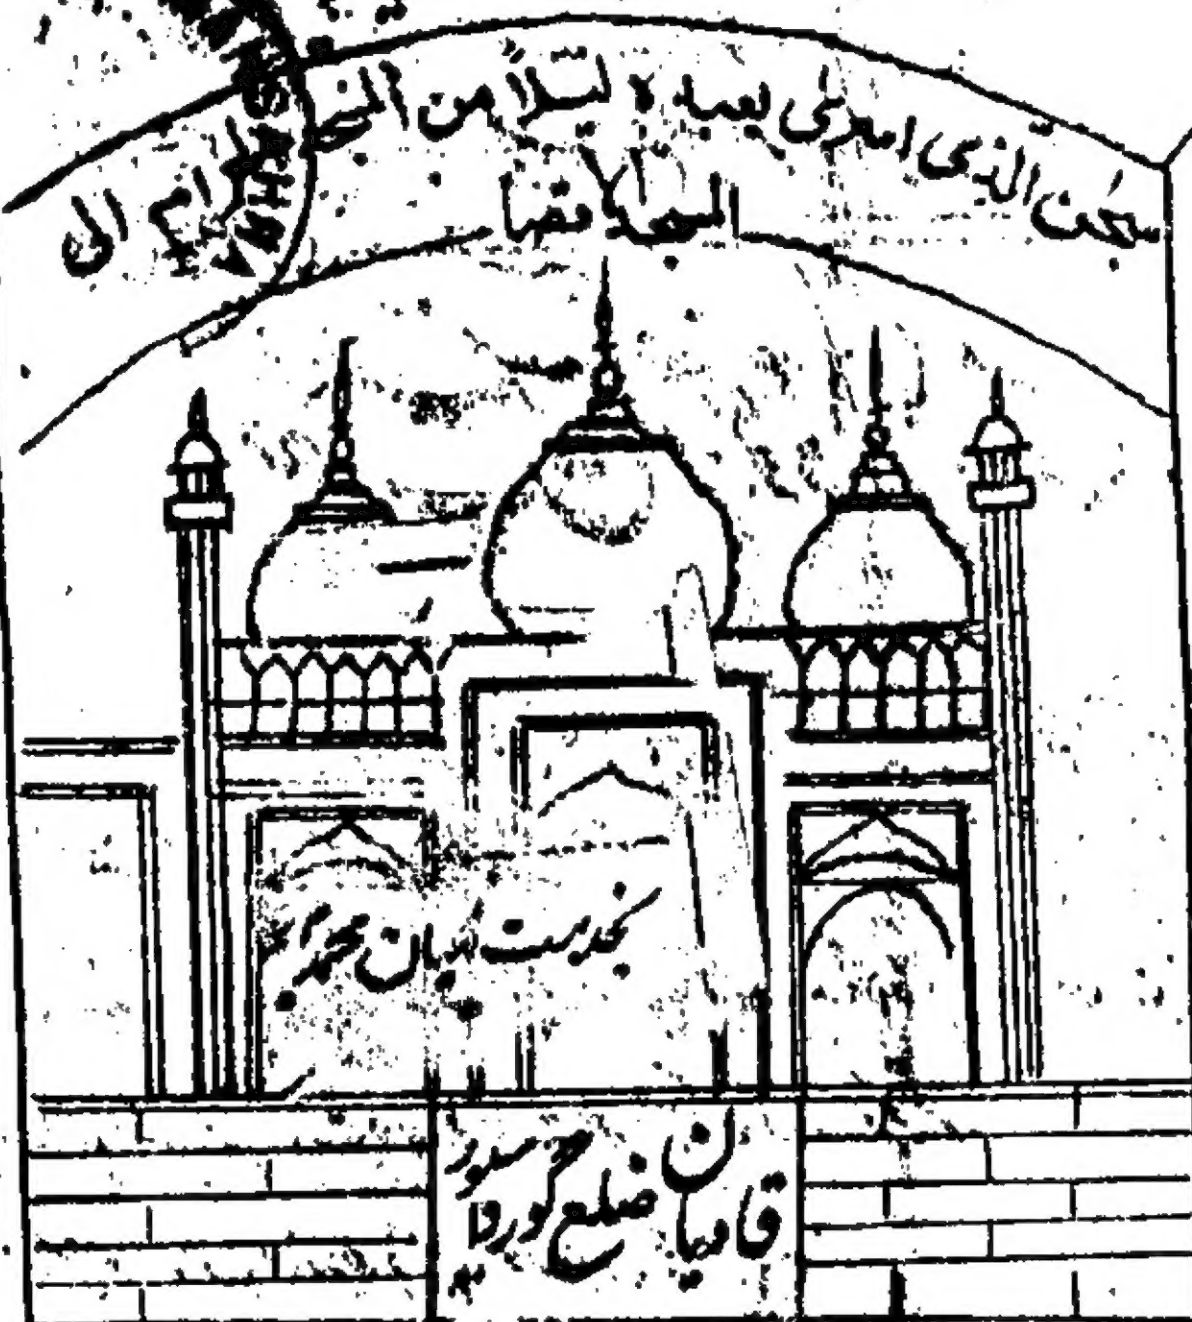 سبحٰن الذی اسریٰ بعبدہ لیلاً من المسجد الحرام الی
المسجد الاقصا
بخدمت میان محمد
قادیان ضلع گورداسپور
SAHA